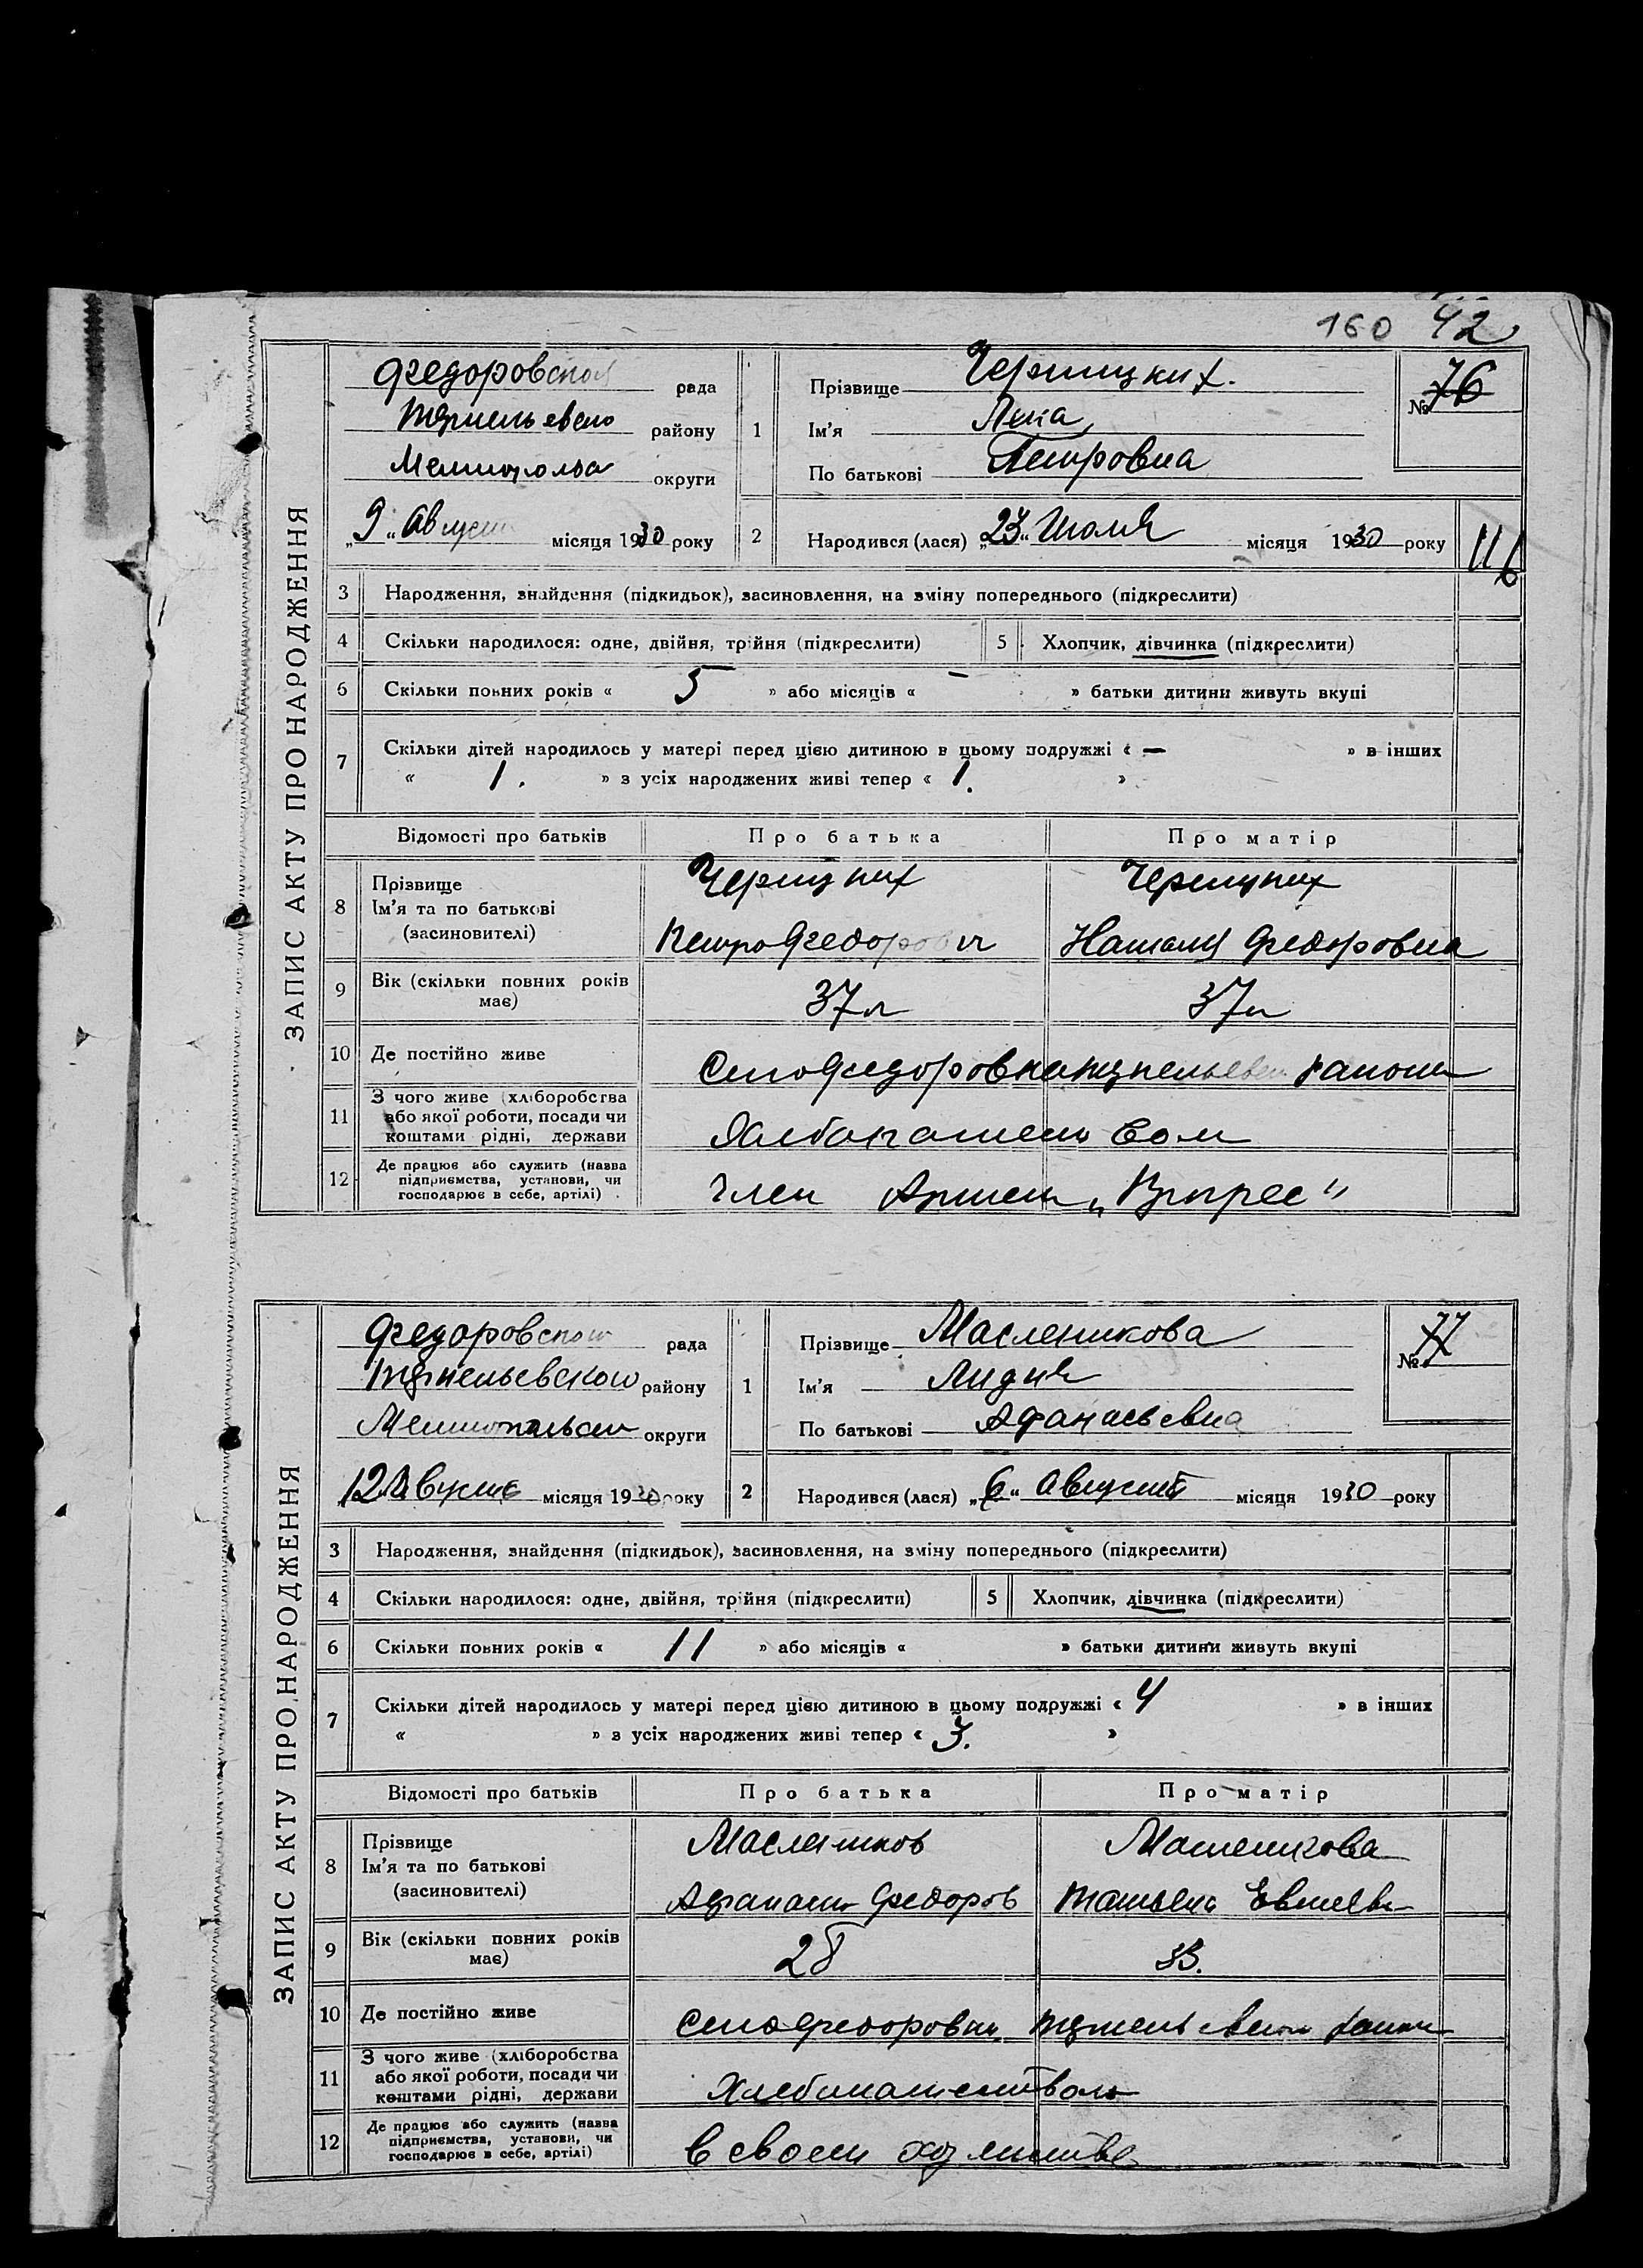 160 42
ЗАПИС АКТУ ПРО НАРОДЖЕННЯ
Федоровской рада
району
округи
„9“ Август місяця 1930 року
1
Прізвище
Ім'я
По батькові Петровна
№ 76
2 Народився (лася) „23“ Июля місяця 1930 року
116
3 Народження, знайдення (підкидьок), засиновлення, на зміну попереднього (підкреслити)
4 Скільки народилося: одне, двійня, трійня (підкреслити) 5 Хлопчик, дівчинка (підкреслити)
6 Скільки повних років « 5 » або місяців « – » батьки дитини живуть вкупі
7 Скільки дітей народилось у матері перед цією дитиною в цьому подружжі « — » в інших
« 1. » з усіх народжених живі тепер « 1. »
Відомості про батьків Про батька Про матір
8 Прізвище
Ім'я та по батькові
(засновителі) Петро Федорович Наталия Федоровна
9 Вік (скільки повних років має) 37 л 37 л
10 Де постійно живе Село Федоровка района
11 З чого живе (хліборобства або якої роботи, посади чи коштами рідні, держави
12 Де працює або служить (назва підприємства, установи, чи господарює в себе, артілі) Член Артели
ЗАПИС АКТУ ПРО НАРОДЖЕННЯ
Федоровской рада
району
округи
12 Август місяця 1930 року
1
Прізвище Масленикова
Ім'я Лидия
По батькові Афанасьевна
№ 77
2 Народився (лася) „6“ Август місяця 1930 року
3 Народження, знайдення (підкидьок), засиновлення, на зміну попереднього (підкреслити)
4 Скільки народилося: одне, двійня, трійня (підкреслити) 5 Хлопчик, дівчинка (підкреслити)
6 Скільки повних років « 11 » або місяців « » батьки дитини живуть вкупі
7 Скільки дітей народилось у матері перед цією дитиною в цьому подружжі « 4 » в інших
« » з усіх народжених живі тепер « 3. »
Відомості про батьків Про батька Про матір
8 Прізвище Маслеников Масленикова
Ім'я та по батькові
(засиновителі) Афанасий Федоров Татьяна
9 Вік (скільки повних років має) 28
10 Де постійно живе Село Федоровка
11 З чого живе (хліборобства або якої роботи, посади чи коштами рідні, держави Хлебопашеством
12 Де працює або служить (назва підприємства, установи, чи господарює в себе, артілі) в своем хозяйстве